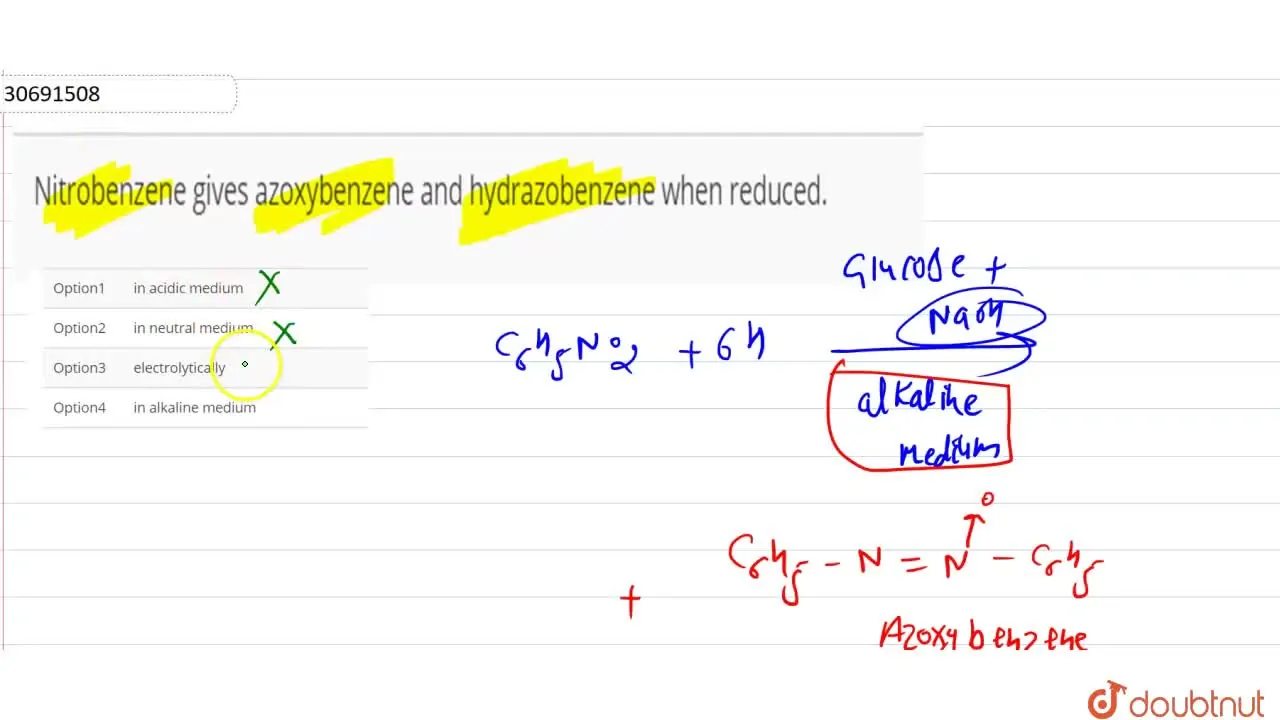 30691508
Nitrobenzene gives azoxybenzene and hydrazobenzene when reduced.
Option1 in acidic medium X
Option2 in neutral medium X
Option3 electrolytically
Option4 in alkaline medium
Glucose +
NaOH
C6H5NO2 + 6H
alkaline
medium
O
C6H5 - N = N - C6H5
+
Azoxybenzene
doubtnut